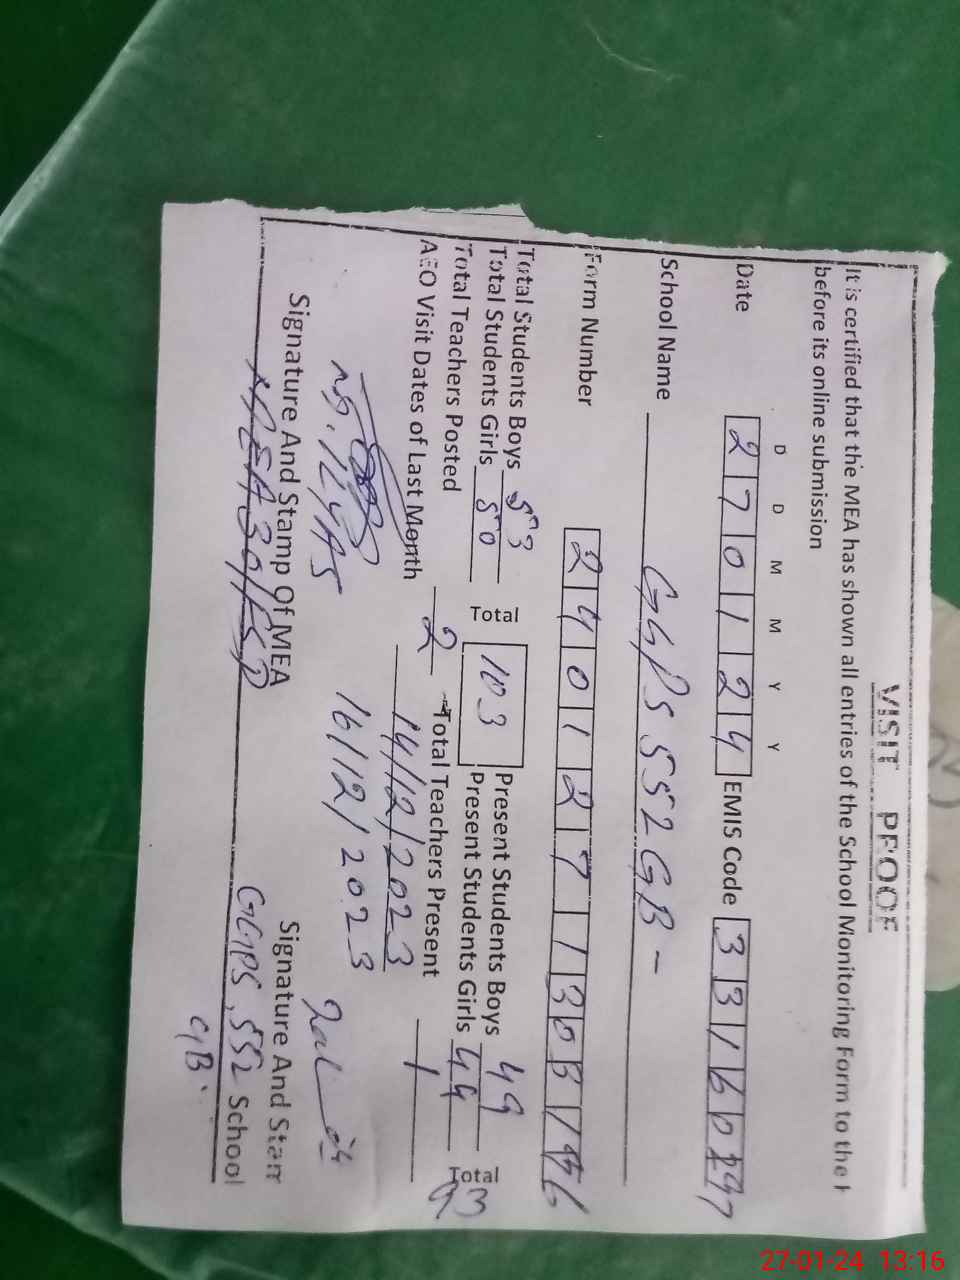 VISIT PROOF
It is certified that the MEA has shown all entries of the School Monitoring Form to the H
before its online submission
D D M M Y Y
Date 270124 EMIS Code 331601
School Name GGPS 552 GB -
Form Number 240127130
Total Students Boys 53 Total 103 Present Students Boys 49 Total 93
Total Students Girls 50 Present Students Girls 44
Total Teachers Posted 2 Total Teachers Present 1
AEO Visit Dates of Last Month 14/12/2023
16/12/2023
Signature And Stamp Of MEA Signature And Stam
MEA 30/FSD GGPS, 552 School
GB.
27-01-24 13:16